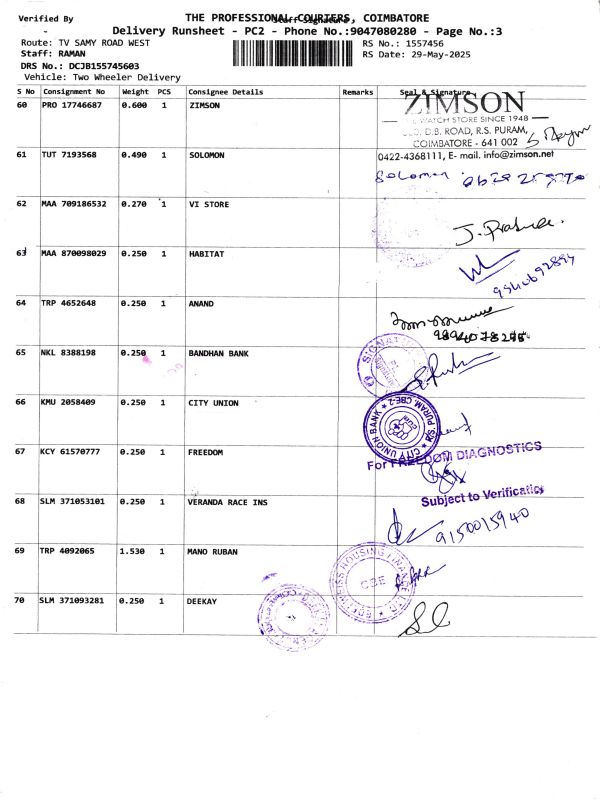 Verified By
THE PROFESSIONAL COURIERS, COIMBATORE
Staff Signature
-
Delivery Runsheet - PC2 - Phone No.:9047080280 - Page No.:3
Route: TV SAMY ROAD WEST
RS No.: 1557456
Staff: RAMAN
RS Date: 29-May-2025
DRS No.: DCJB155745603
Vehicle: Two Wheeler Delivery
S No Consignment No Weight PCS Consignee Details Remarks Seal & Signature
60 PRO 17746687 0.600 1 ZIMSON
ZIMSON
WATCH STORE SINCE 1948
D.B. ROAD, R.S. PURAM,
COIMBATORE - 641 002
0422-4368111, E- mail. info@zimson.net
61 TUT 7193568 0.490 1 SOLOMON
Solomon
62 MAA 709186532 0.270 1 VI STORE
63 MAA 870098029 0.250 1 HABITAT
64 TRP 4652648 0.250 1 ANAND
65 NKL 8388198 0.250 1 BANDHAN BANK
66 KMU 2058409 0.250 1 CITY UNION
CITY UNION BANK ★ R.S. PURAM, CBE-2 ★
67 KCY 61570777 0.250 1 FREEDOM
For FREEDOM DIAGNOSTICS
Subject to Verification
68 SLM 371053101 0.250 1 VERANDA RACE INS
9150015940
69 TRP 4092065 1.530 1 MANO RUBAN
CBE
70 SLM 371093281 0.250 1 DEEKAY